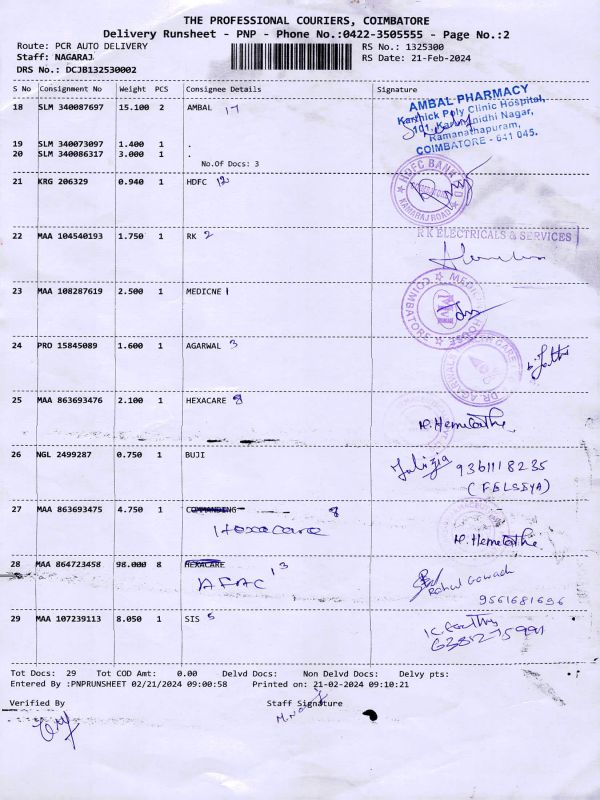 THE PROFESSIONAL COURIERS, COIMBATORE
Delivery Runsheet - PNP - Phone No.:0422-3505555 - Page No.:2
Route: PCR AUTO DELIVERY RS No.: 1325300
Staff: NAGARAJ RS Date: 21-Feb-2024
DRS No.: DCJB132530002
S No Consignment No Weight PCS Consignee Details Signature
18 SLM 340087697 15.100 2 AMBAL 17
AMBAL PHARMACY
Karthick Poly Clinic Hospital,
Ramanathapuram,
COIMBATORE - 641 045.
19 SLM 340073097 1.400 1 .
20 SLM 340086317 3.000 1 .
No.Of Docs: 3
21 KRG 206329 0.940 1 HDFC 12
HDFC BANK
KAMARAJ ROAD
22 MAA 104540193 1.750 1 RK 2
R K ELECTRICALS & SERVICES
23 MAA 108287619 2.500 1 MEDICNE 1
COIMBATORE
24 PRO 15845089 1.600 1 AGARWAL 3
25 MAA 863693476 2.100 1 HEXACARE 8
26 NGL 2499287 0.750 1 BUJI
9361118235
27 MAA 863693475 4.750 1 COMMANDING 8
Hexacare
28 MAA 864723458 98.000 8 HEXACARE 13
AFAC
9561681696
29 MAA 107239113 8.050 1 SIS 5
Tot Docs: 29 Tot COD Amt: 0.00 Delvd Docs: Non Delvd Docs: Delvy pts:
Entered By :PNPRUNSHEET 02/21/2024 09:00:58 Printed on: 21-02-2024 09:10:21
Verified By Staff Signature